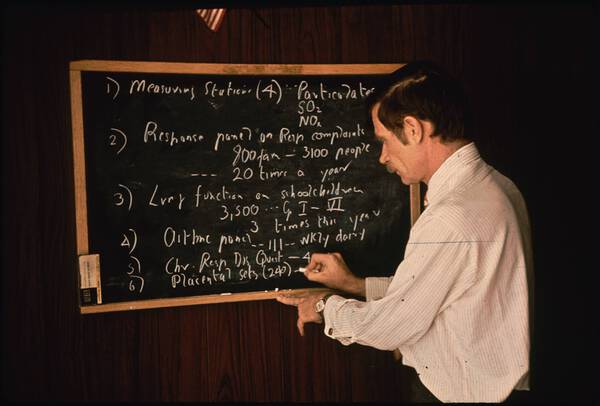 1) Measuring Station (4) -- Particulates
SO2
NOx
2) Response panel on Resp complaints
900 fam - 3100 people
--- 20 times a year
3) Lung function on schoolchildren
3,500 --- G I - VI
3 times this year
4) panel -- 111 -- wkly diary
5) Chr. Resp Dis Quest - 4
6) Placental sets (240) -